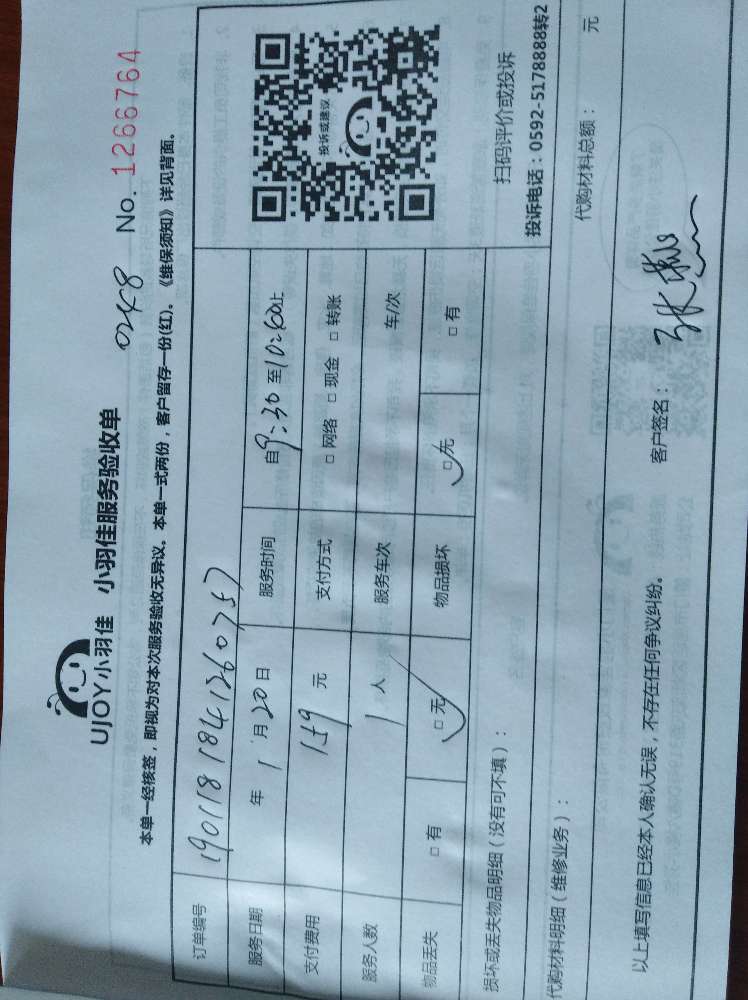 UJOY小羽佳 小羽佳服务验收单
0248 No. 1266764
本单一经核签，即视为对本次服务验收无异议。本单一式两份，客户留存一份(红)。《维保须知》详见背面。
订单编号 1901181841260757
服务日期 年 1 月 20 日 服务时间 自 9:30 至 10:00 止
支付费用 159 元 支付方式 □ 网络 □ 现金 □ 转账
服务人数 1 人 服务车次 车/次
物品丢失 □ 有 □ 无 物品损坏 □ 无 □ 有
投诉或建议
扫码评价或投诉
投诉电话：0592-5178888转2
损坏或丢失物品明细（没有可不填）：
代购材料明细（维修业务）： 代购材料总额： 元
以上填写信息已经本人确认无误，不存在任何争议纠纷。 客户签名：